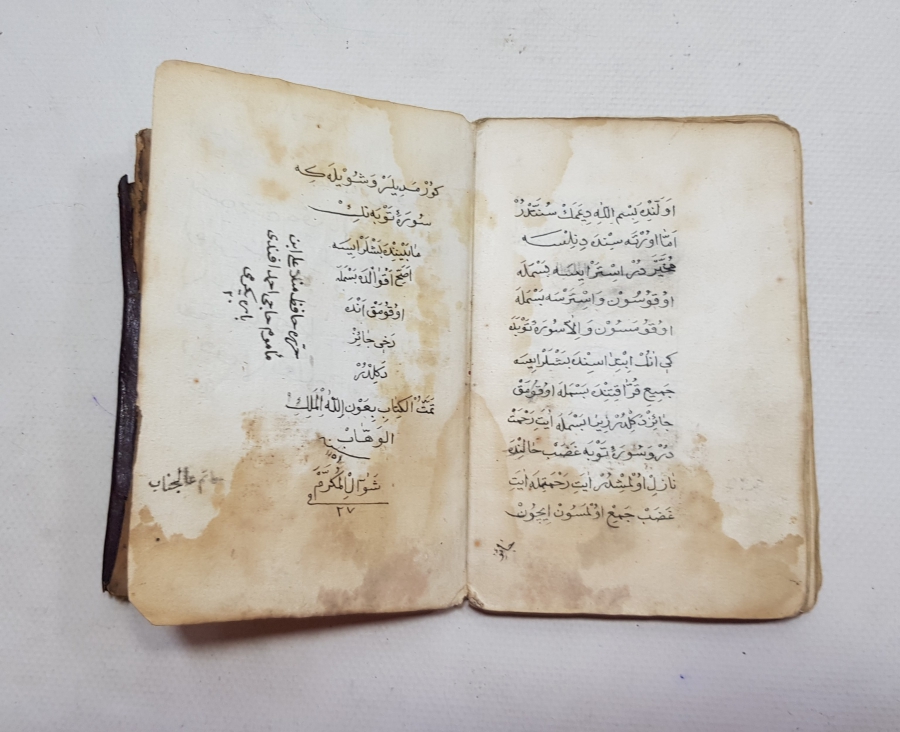 اَوَّلِنْدَه بِسْمِ اللّٰه دِيمَكْ سُنَّتْدُرْ
اَمَّا اورْتَه سِنْدَه دِيلْسَه
مُخَيَّرْدُرْ اِسْتَرْ اِيسَه بَسْمَلَه
اوقُوسُونْ وَاِسْتَرْسَه بَسْمَلَه
اوقُومَسُونْ وَاِلَّا سُورَۀ تَوْبَه
كِى اَنُكْ اِبْتِدَاسِنْدَه بَشْلَرْ اِيسَه
جَمِيعِ قُرَّا قَتِنْدَه بَسْمَلَه اوقُومَقْ
جَائِزْ دَكُلْدُرْ زِيرَا بَسْمَلَه اٰيَتِ رَحْمَتْ
دُرْ وَسُورَۀ تَوْبَه غَضَبْ حَالِنْدَه
نَازِلْ اوُلْمِشْدُرْ اٰيَتِ رَحْمَتْلَه اٰيَتِ
غَضَبْ جَمِعْ اوُلْمَسُونْ اِيچُونْ
جائز
كورْمَدِيلَرْ وَشُويْلَه كِه
سُورَۀ تَوْبَه نِكْ
مَابَيْنِنْدَه بَشْلَرْ اِيسَه
اَصَحِّ اَقْوَالْدَه بَسْمَلَه
اوُقُومَقْ اَنْدَه
دَخِى جَائِزْ
دَكِلْدُرْ
تَمَّتْ الْكِتَابِ بِعَوْنِ اللّٰهِ الْمَلِكِ
الوَهَّابْ
سنه
شَوَّالِ الْمُكَرَّمْ
فى
٢٧
حافظ على ابن
حاجى احمد افندى